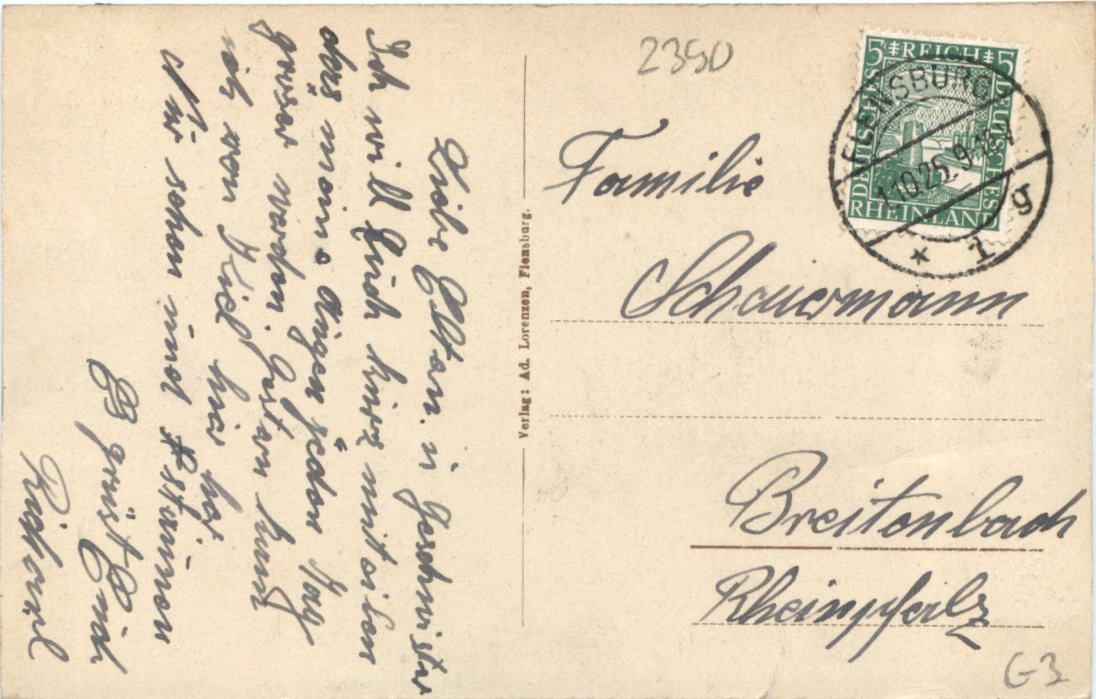 Liebe Eltern. u Geschwister
Ich will Euch kurz mitteilen
das meine Augen jeden Tag
besser werden. Gestern kam
ich von Kiel hier her
Nur sehen und
Es grüßt Euch
Richard
Verlag: Ad. Lorenzen, Flensburg.
2350
5 REICH 5
DEUTSCHES
DEUTSCHES
RHEINLAND
FLENSBURG
1.10.25. 9-10V
* 1 g
Familie
Scheuermann
Breitenbach
Rheinpfalz
G3